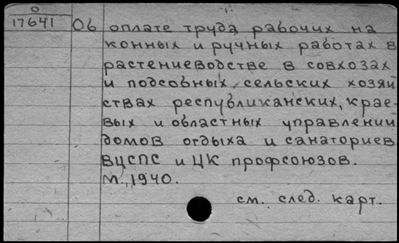 О
17641
Об оплате труда рабочих на
конных и ручных работах в
растениеводстве в совхозах
и подсобных сельских хозяй
ствах республиканских, крае-
вых и областных управлений
домов отдыха и санаториев
ВЦСПС и ЦК профсоюзов.
М., 1940.
см. след. карт.